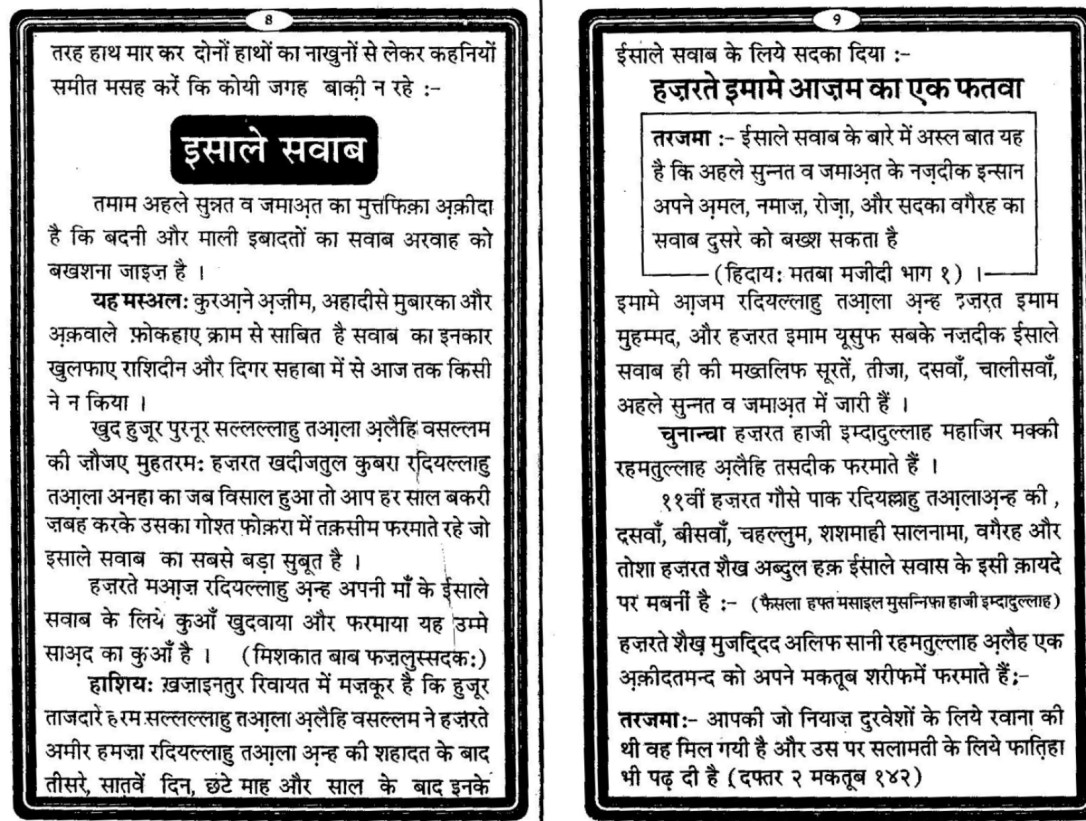 8
तरह हाथ मार कर दोनों हाथों का नाखुनों से लेकर कहनियों
समीत मसह करें कि कोयी जगह बाक़ी न रहे :-
इसाले सवाब
तमाम अहले सुन्नत व जमाअ़त का मुत्तफिक़ा अ़क़ीदा
है कि बदनी और माली इबादतों का सवाब अरवाह को
बखशना जाइज़ है ।
यह मस्अल: कुरआने अज़ीम, अहादीसे मुबारका और
अ़क़वाले फ़ोकहाए क्राम से साबित है सवाब का इनकार
खुलफाए राशिदीन और दिगर सहाबा में से आज तक किसी
ने न किया ।
खुद हुजूर पुरनूर सल्लल्लाहु तआ़ला अ़लैहि वसल्लम
की ज़ौजए मुहतरम: हज़रत खदीजतुल कुबरा रदियल्लाहु
तआ़ला अनहा का जब विसाल हुआ तो आप हर साल बकरी
ज़बह करके उसका गोश्त फोक़रा में तक़सीम फरमाते रहे जो
इसाले सवाब का सबसे बड़ा सुबूत है ।
हज़रते मआ़ज़ रदियल्लाहु अ़न्ह अपनी माँ के ईसाले
सवाब के लिये कुआँ खुदवाया और फरमाया यह उम्मे
साअ़द का कुआँ है । (मिशकात बाब फज़लुस्सदक:)
हाशिय: ख़ज़ाइनतुर रिवायत में मज़कूर है कि हुजूर
ताजदारें हरम सल्लल्लाहु तआ़ला अ़लैहि वसल्लम ने हज़रते
अमीर हमज़ा रदियल्लाहु तआ़ला अ़न्ह की शहादत के बाद
तीसरे, सातवें दिन, छंटे माह और साल के बाद इनके
9
ईसाले सवाब के लिये सदका दिया :-
हज़रते इमामे आज़म का एक फतवा
तरजमा :- ईसाले सवाब के बारे में अस्ल बात यह
है कि अहले सुन्नत व जमाअ़त के नज़दीक इन्सान
अपने अ़मल, नमाज़, रोज़ा, और सदका वगैरह का
सवाब दुसरे को बख्श सकता है
(हिदाय: मतबा मजीदी भाग १) ।
इमामे आज़म रदियल्लाहु तआ़ला अ़न्ह हज़रत इमाम
मुहम्मद, और हज़रत इमाम यूसुफ सबके नज़दीक ईसाले
सवाब ही की मख्तलिफ सूरतें, तीजा, दसवाँ, चालीसवाँ,
अहले सुन्नत व जमाअ़त में जारी हैं ।
चुनान्चा हज़रत हाजी इम्दादुल्लाह महाजिर मक्की
रहमतुल्लाह अ़लैहि तसदीक फरमाते हैं ।
११वीं हज़रत गौसे पाक रदियल्लाहु तआ़लाअ़न्ह की ,
दसवाँ, बीसवाँ, चहल्लुम, शशमाही सालनामा, वगैरह और
तोशा हज़रत शैख अब्दुल हक़ ईसाले सवास के इसी क़ायदे
पर मबनीं है :- (फैसला हफ्त मसाइल मुसन्निफा हाजी इम्दादुल्लाह)
हज़रते शैख़ मुजदि्दद अलिफ सानी रहमतुल्लाह अ़लैह एक
अ़क़ीदतमन्द को अपने मकतूब शरीफमें फरमाते हैं;-
तरजमा:- आपकी जो नियाज़ दुरवेशों के लिये रवाना की
थी वह मिल गयी है और उस पर सलामती के लिये फातिहा
भी पढ़ दी है (दफ्तर २ मकतूब १४२)